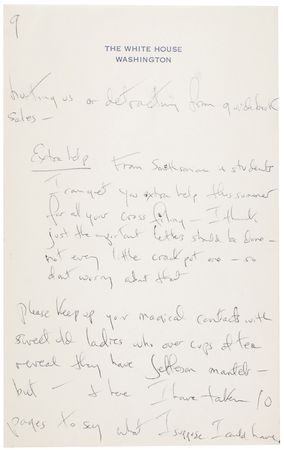 9
THE WHITE HOUSE
WASHINGTON
hurting us or detracting from guidebook
sales —
Extra help From Smithsonian + students
I can get you extra help this summer
for all your cross filing — I think
just the important letters should be done —
not every little crack pot one — so
dont worry about that
please keep up your magical contacts with
sweet old ladies who over cups of tea
reveal they have Jefferson mantels —
but — here I have taken 10
pages to say what I suppose I could have